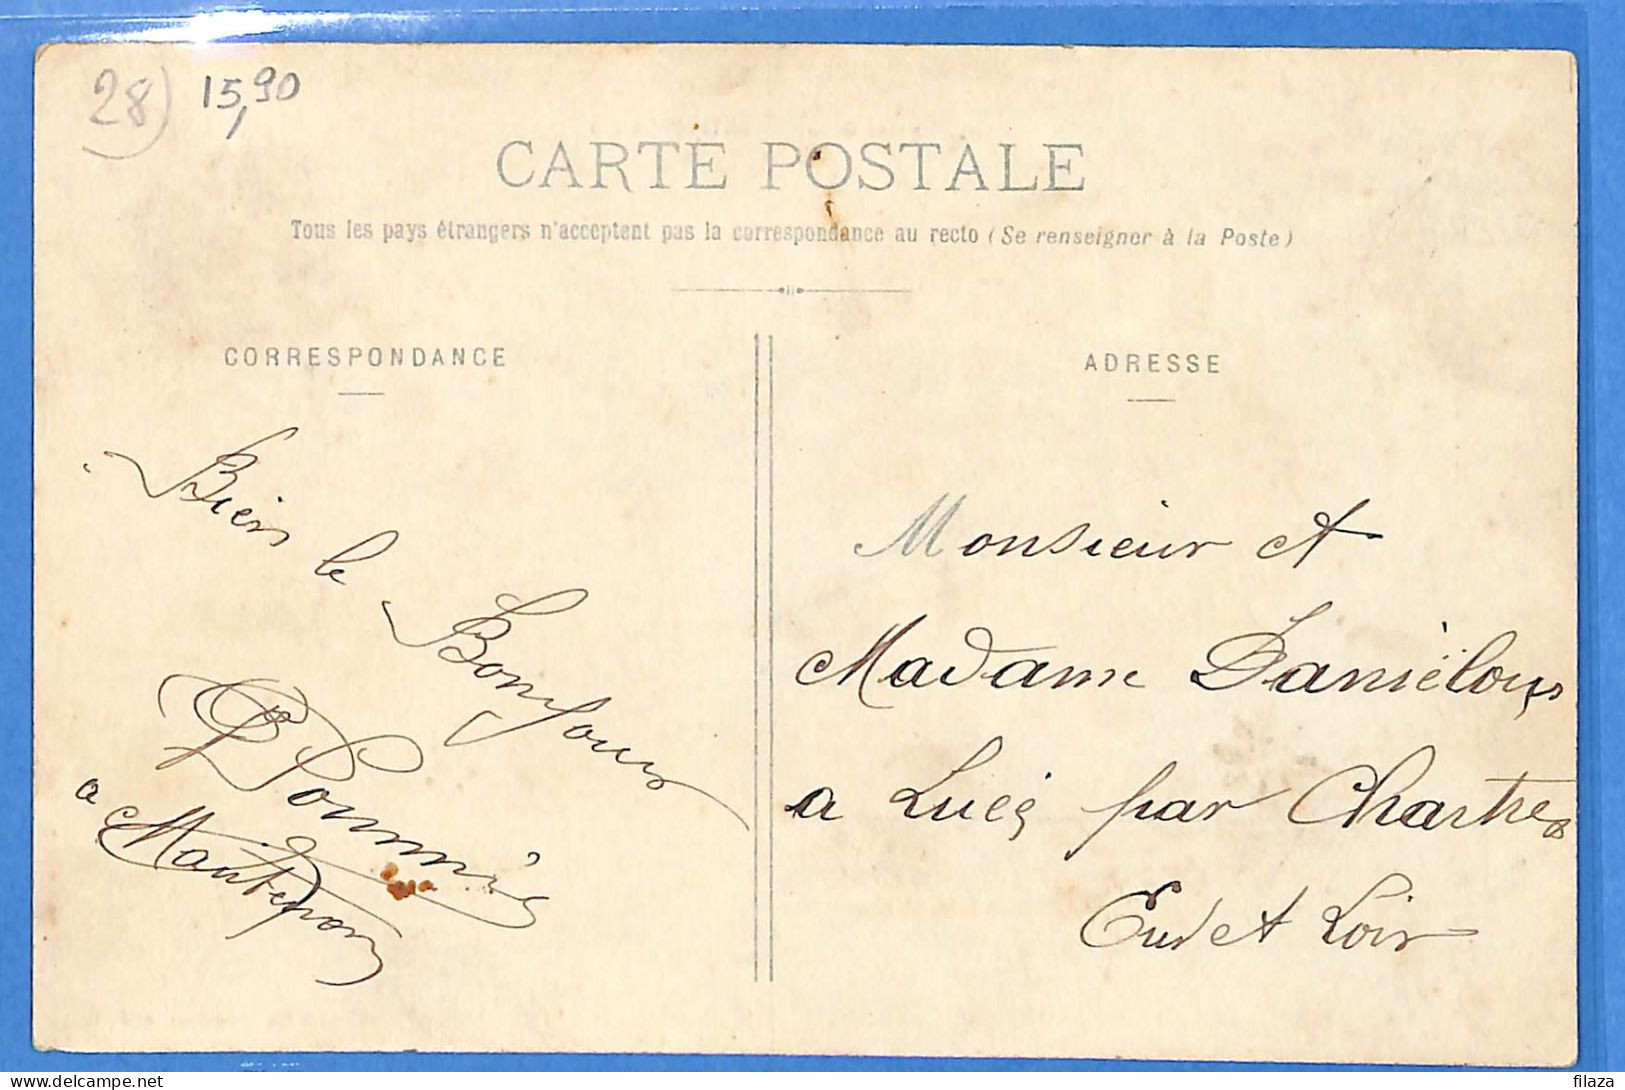 28) 15,90
CARTE POSTALE
Tous les pays étrangers n'acceptent pas la correspondance au recto (Se renseigner à la Poste)
CORRESPONDANCE
Bien le
Bonjour
a
ADRESSE
Monsieur et
Madame Daniélou
a Lucé par Chartres
Eur et Loir
filaza